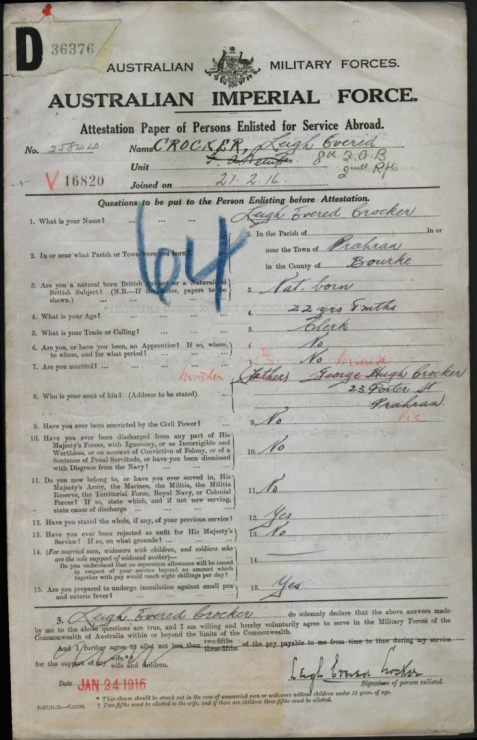 D 36376
AUSTRALIAN MILITARY FORCES.
AUSTRALIAN IMPERIAL FORCE.
Attestation Paper of Persons Enlisted for Service Abroad.
No. Name CROCKER, Leigh Evered
Unit 8th F.A.B
2nd Rfts
V 16820 Joined on 21.2.16.
Questions to be put to the Person Enlisting before Attestation.
64
1. What is your Name? ... Leigh Evered Crocker
2. In or near what Parish or Town were you born? 2. In the Parish of in or
near the Town of Prahran
in the County of Bourke
3. Are you a natural born British Subject or a Naturalized
British Subject? (N.B.—If the latter, papers to be
shown.) 3. Nat. born
4. What is your Age? 4. 22 yrs 8 mths
5. What is your Trade or Calling? 5. Clerk
6. Are you, or have you been, an Apprentice? If so, where,
to whom, and for what period? 6. No
7. Are you married? 7. No
8. Who is your next of kin? (Address to be stated) Mother (Father) George Hugh Crocker
23 Porter St
Prahran
Vic
9. Have you ever been convicted by the Civil Power? 9. No
10. Have you ever been discharged from any part of His
Majesty's Forces, with Ignominy, or as Incorrigible and
Worthless, or on account of Conviction of Felony, or of a
Sentence of Penal Servitude, or have you been dismissed
with Disgrace from the Navy? 10. No
11. Do you now belong to, or have you ever served in, His
Majesty's Army, the Marines, the Militia, the Militia
Reserve, the Territorial Force, Royal Navy, or Colonial
Forces? If so, state which, and if not now serving,
state cause of discharge 11. No
12. Have you stated the whole, if any, of your previous service? 12. Yes
13. Have you ever been rejected as unfit for His Majesty's
Service? If so, on what grounds? 13. No
14. (For married men, widowers with children, and soldiers who
are the sole support of widowed mother)—
Do you understand that no separation allowance will be issued
in respect of your service beyond an amount which
together with pay would reach eight shillings per day? 14. —
15. Are you prepared to undergo inoculation against small pox
and enteric fever? 15. Yes
I, Leigh Evered Crocker do solemnly declare that the above answers made
by me to the above questions are true, and I am willing and hereby voluntarily agree to serve in the Military Forces of the
Commonwealth of Australia within or beyond the limits of the Commonwealth.
And I further agree to allot not less than two-fifths three-fifths of the pay payable to me from time to time during my service
for the support of my wife wife and children.
Date JAN 24 1916 Leigh Evered Crocker
Signature of person enlisted.
* This clause should be struck out in the case of unmarried men or widowers without children under 18 years of age.
† Two fifths must be allotted to the wife, and if there are children three fifths must be allotted.